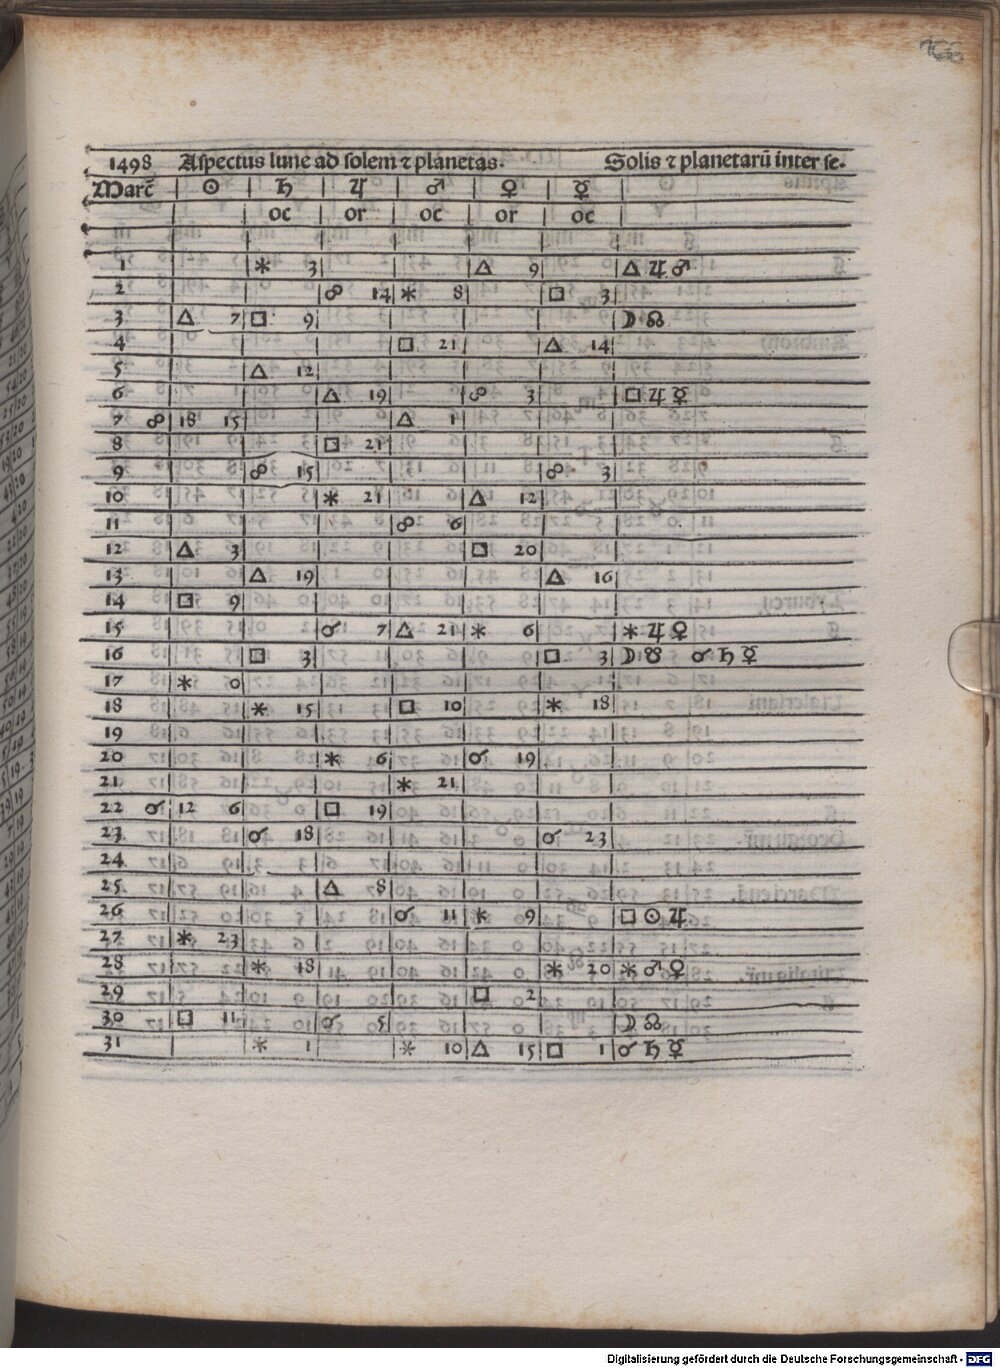 166
1498 Aſpectus lune ad ſolem ⁊ planetas. Solis ⁊ planetarū inter ſe.
Marc̄ | ☉ | ♄ | ♃ | ♂ | ♀ | ☿ |
oc | or | oc | or | oc
1 ⚹ 3 △ 9 △ ♃ ♂
2 ☍ 14 ⚹ 8 □ 3
3 △ 7 □ 9 ☽ ☊
4 □ 21 △ 14
5 △ 12
6 △ 19 ☍ 3 □ ♃ ☿
7 ☍ 18 15 △ 1
8 □ 21
9 ☍ 15 ☍ 3
10 ⚹ 21 △ 12
11 ☍ 6
12 △ 3 □ 20
13 △ 19 △ 16
14 □ 9
15 ☌ 7 △ 21 ⚹ 6 ⚹ ♃ ♀
16 □ 3 □ 3 ☽ ☋ ☌ ♄ ☿
17 ⚹ 0
18 ⚹ 15 □ 10 ⚹ 18
19
20 ⚹ 6 ☌ 19
21 ⚹ 21
22 ☌ 12 6 □ 19
23 ☌ 18 ☌ 23
24
25 △ 8
26 ☌ 11 ⚹ 9 □ ☉ ♃
27 ⚹ 23
28 ⚹ 18 ⚹ 20 ⚹ ♂ ♀
29 □ 2
30 □ 11 ☌ 5 ☽ ☊
31 ⚹ 1 ⚹ 10 △ 15 □ 1 ☌ ♄ ☿
Digitalisierung gefördert durch die Deutsche Forschungsgemeinschaft - DFG